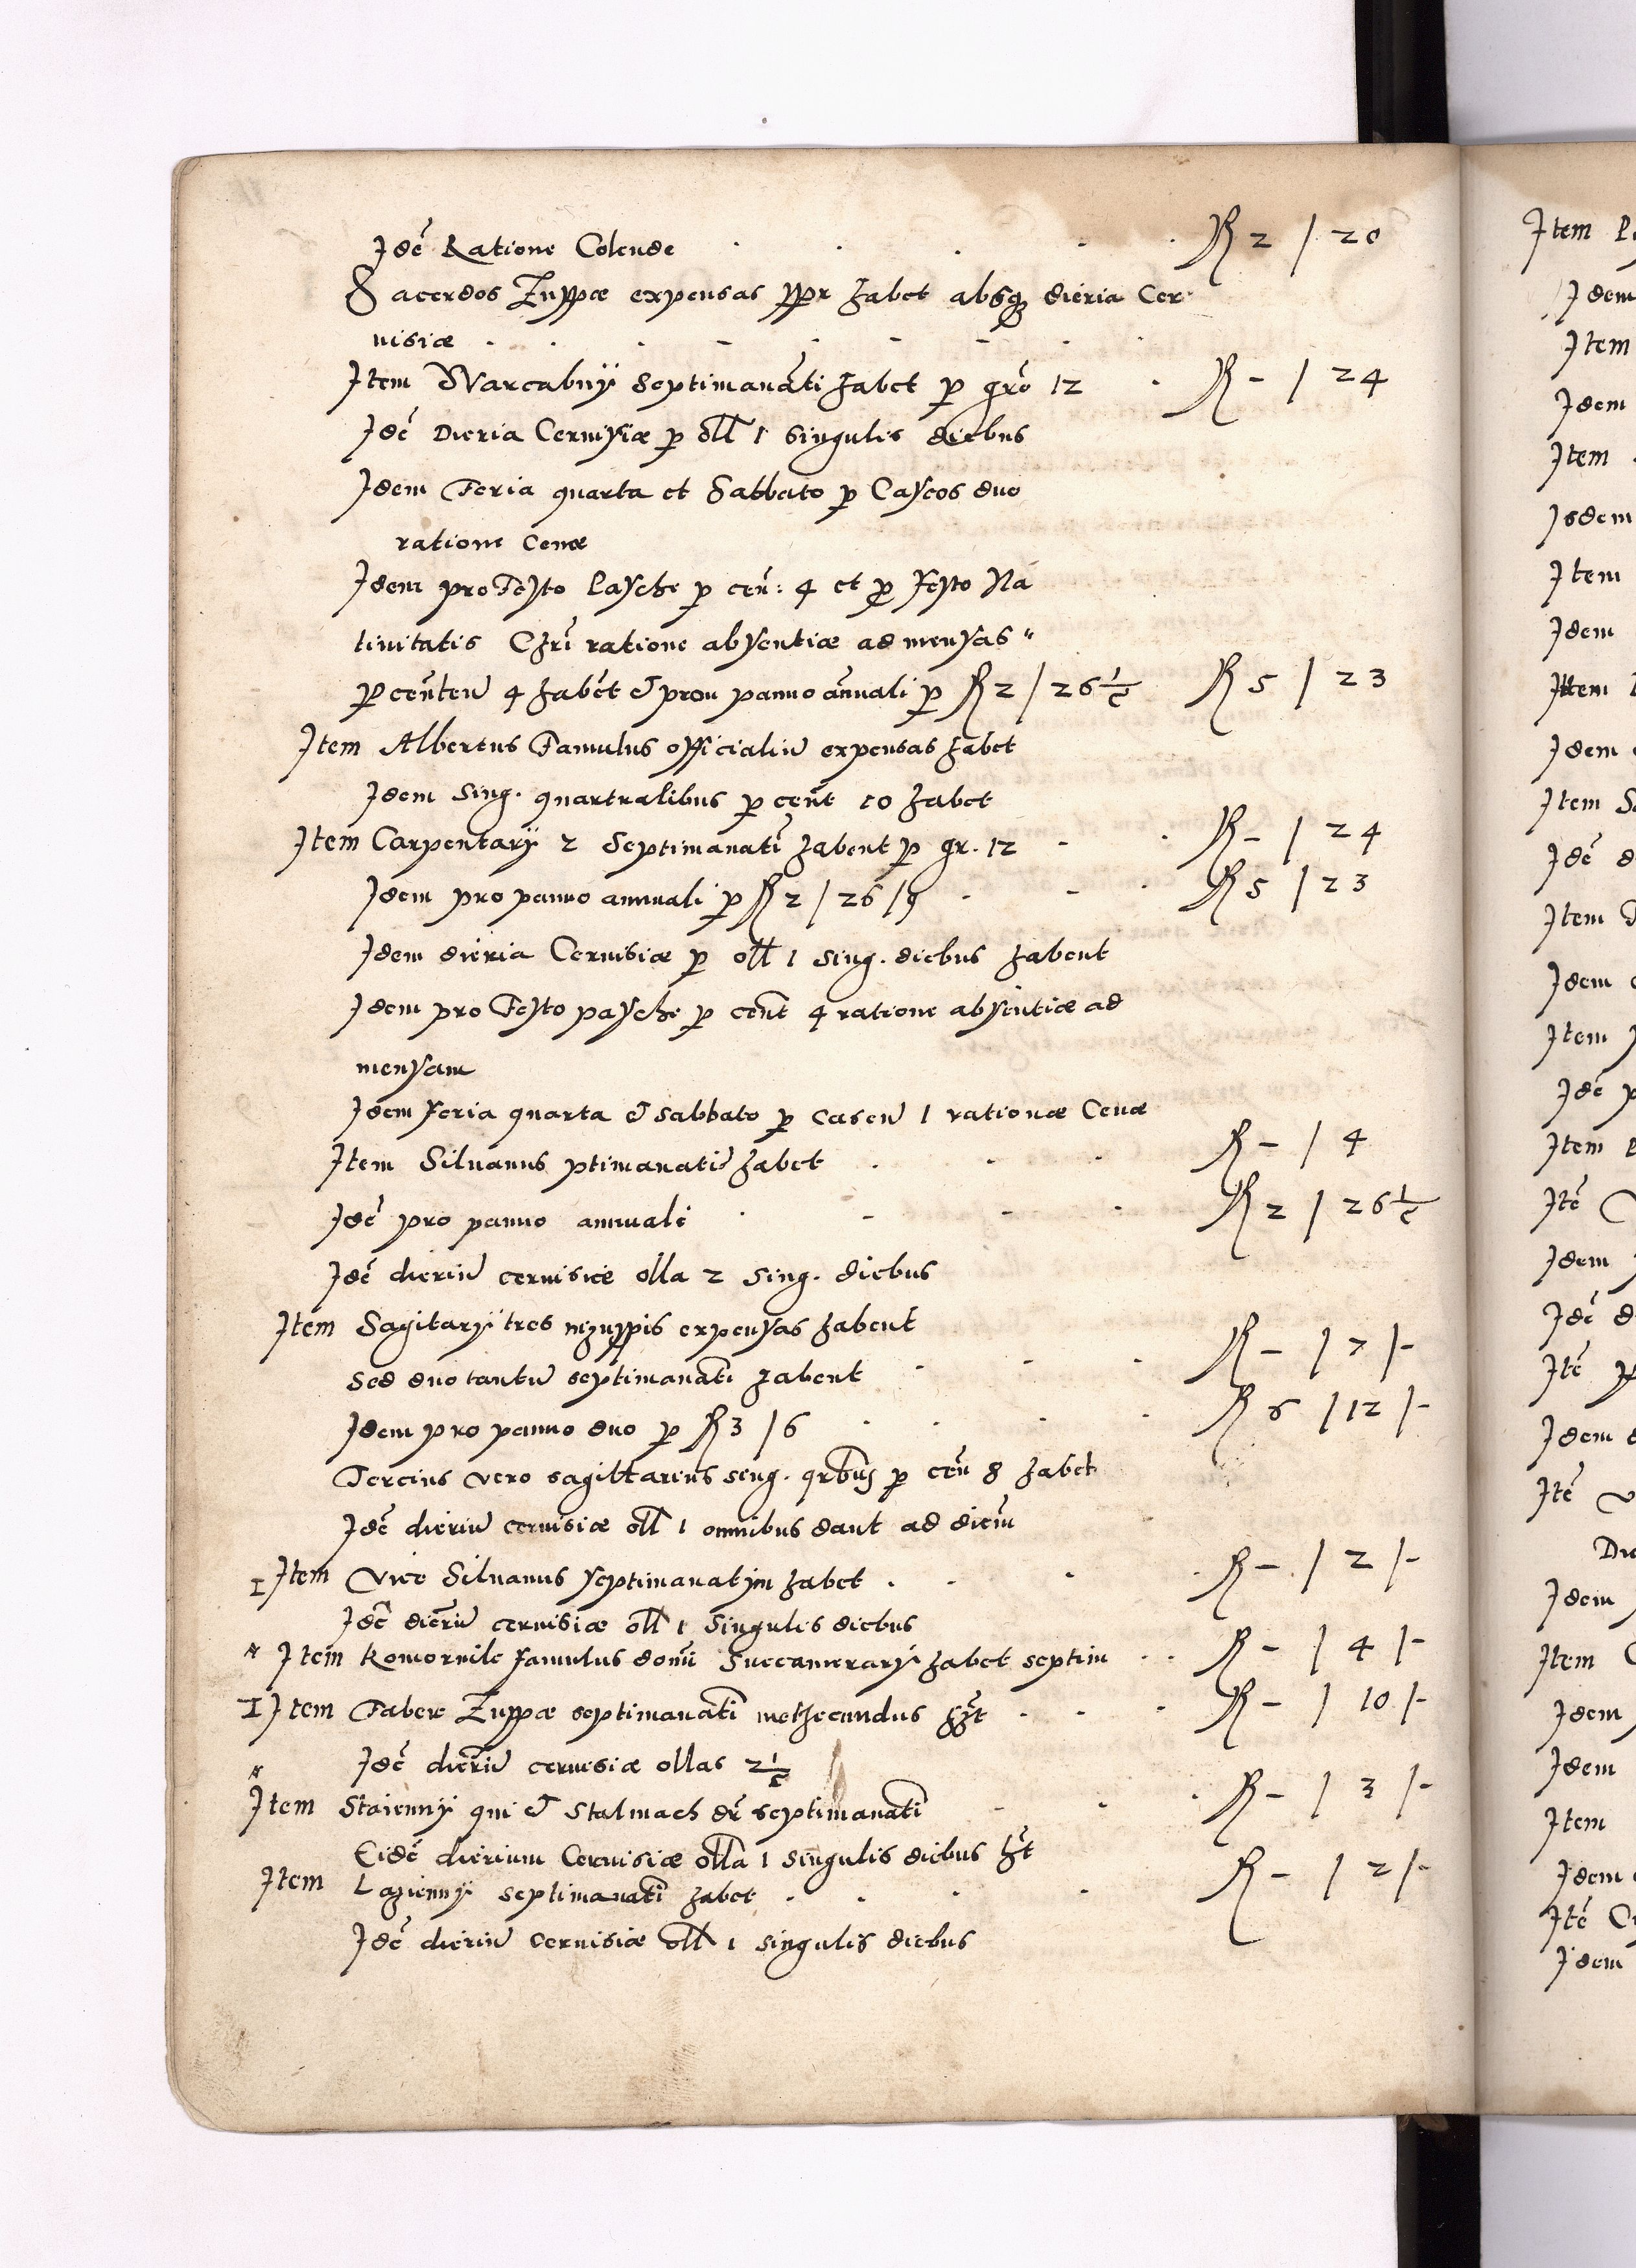 Idē Ratione Colende . . . . . R 2 / 20
Sacerdos Zuppæ expensas ppr habet absq3 dieria Cer
uisiæ . . . . . . . . .
Item Warcabnÿ Septimanāti habet p grō 12 . R – / 24
Idē Dieria Ceruisiæ p oll 1 singulis diebus
Idem Feria quarta et Sabbato p Caseos duo
ratione Cenæ
Idem pro Festo Pasche p cen̄: 4 et p̱ festo Na
tiuitatis Chri ratione absentiæ ad mensas"
P centen̄ 4 habet & pron panno an̄uali p R 2 / 26 ½ R 5 / 23
Item Albertus Famulus officialiū expensas habet
Idem Sing. quartralibus p cent 10 habet
Item Carpentarÿ 2 Septimanatī habent p gr. 12 - . R – / 24
Idem pro panno annuali p R 2 / 26 / 9 - - - R 5 / 23
Idem dieria Ceruisiæ p oll 1 sing. diebus habent
Idem pro Festo pasche p cent 4 ratione absentiæ ad
mensam
Idem feria quarta & sabbato p caseū 1 rationæ Cenæ
Item Siluanus ptimanatī habet . . . R – / 4
Idē pro panno annuali . - - . R 2 / 26 ½
Idē dieriū ceruisiæ olla 2 sing. diebus
Item Sagitarÿ tres in zuppis expensas habent
sed duo tantū septimanāti habent . . . R – / 7 / -
Idem pro panno duo p R 3 / 6 . . . . R 6 / 12 / -
Tercius vero sagittarius sing. qrbus p cen̄ 8 habet
Idē dieriū ceruisiæ oll 1 omnibus dant ad diem̄
I Item Vice Siluanus septimanatim habet . . . . R – / 2 / -
Idē dieriū ceruisiæ oll 1 singulis diebus
Item Komornik famulus domī Succamerarÿ habet septim . . R – / 4 / -
I Item Faber Zuppæ septimanatī methecundus hȳt . . . R – / 10 / -
Idē dieriū ceruisiæ ollas 2 ½
Item Staiennÿ qui & Stalmach dr̄ septimanatī - . . R – / 3 / -
Eidē dierium Ceruisiæ olla 1 singulis diebus hȳt
Item Laziennÿ septimanatī habet . . . . R – / 2 / -
Idē dieriū ceruisiæ oll 1 singulis diebus